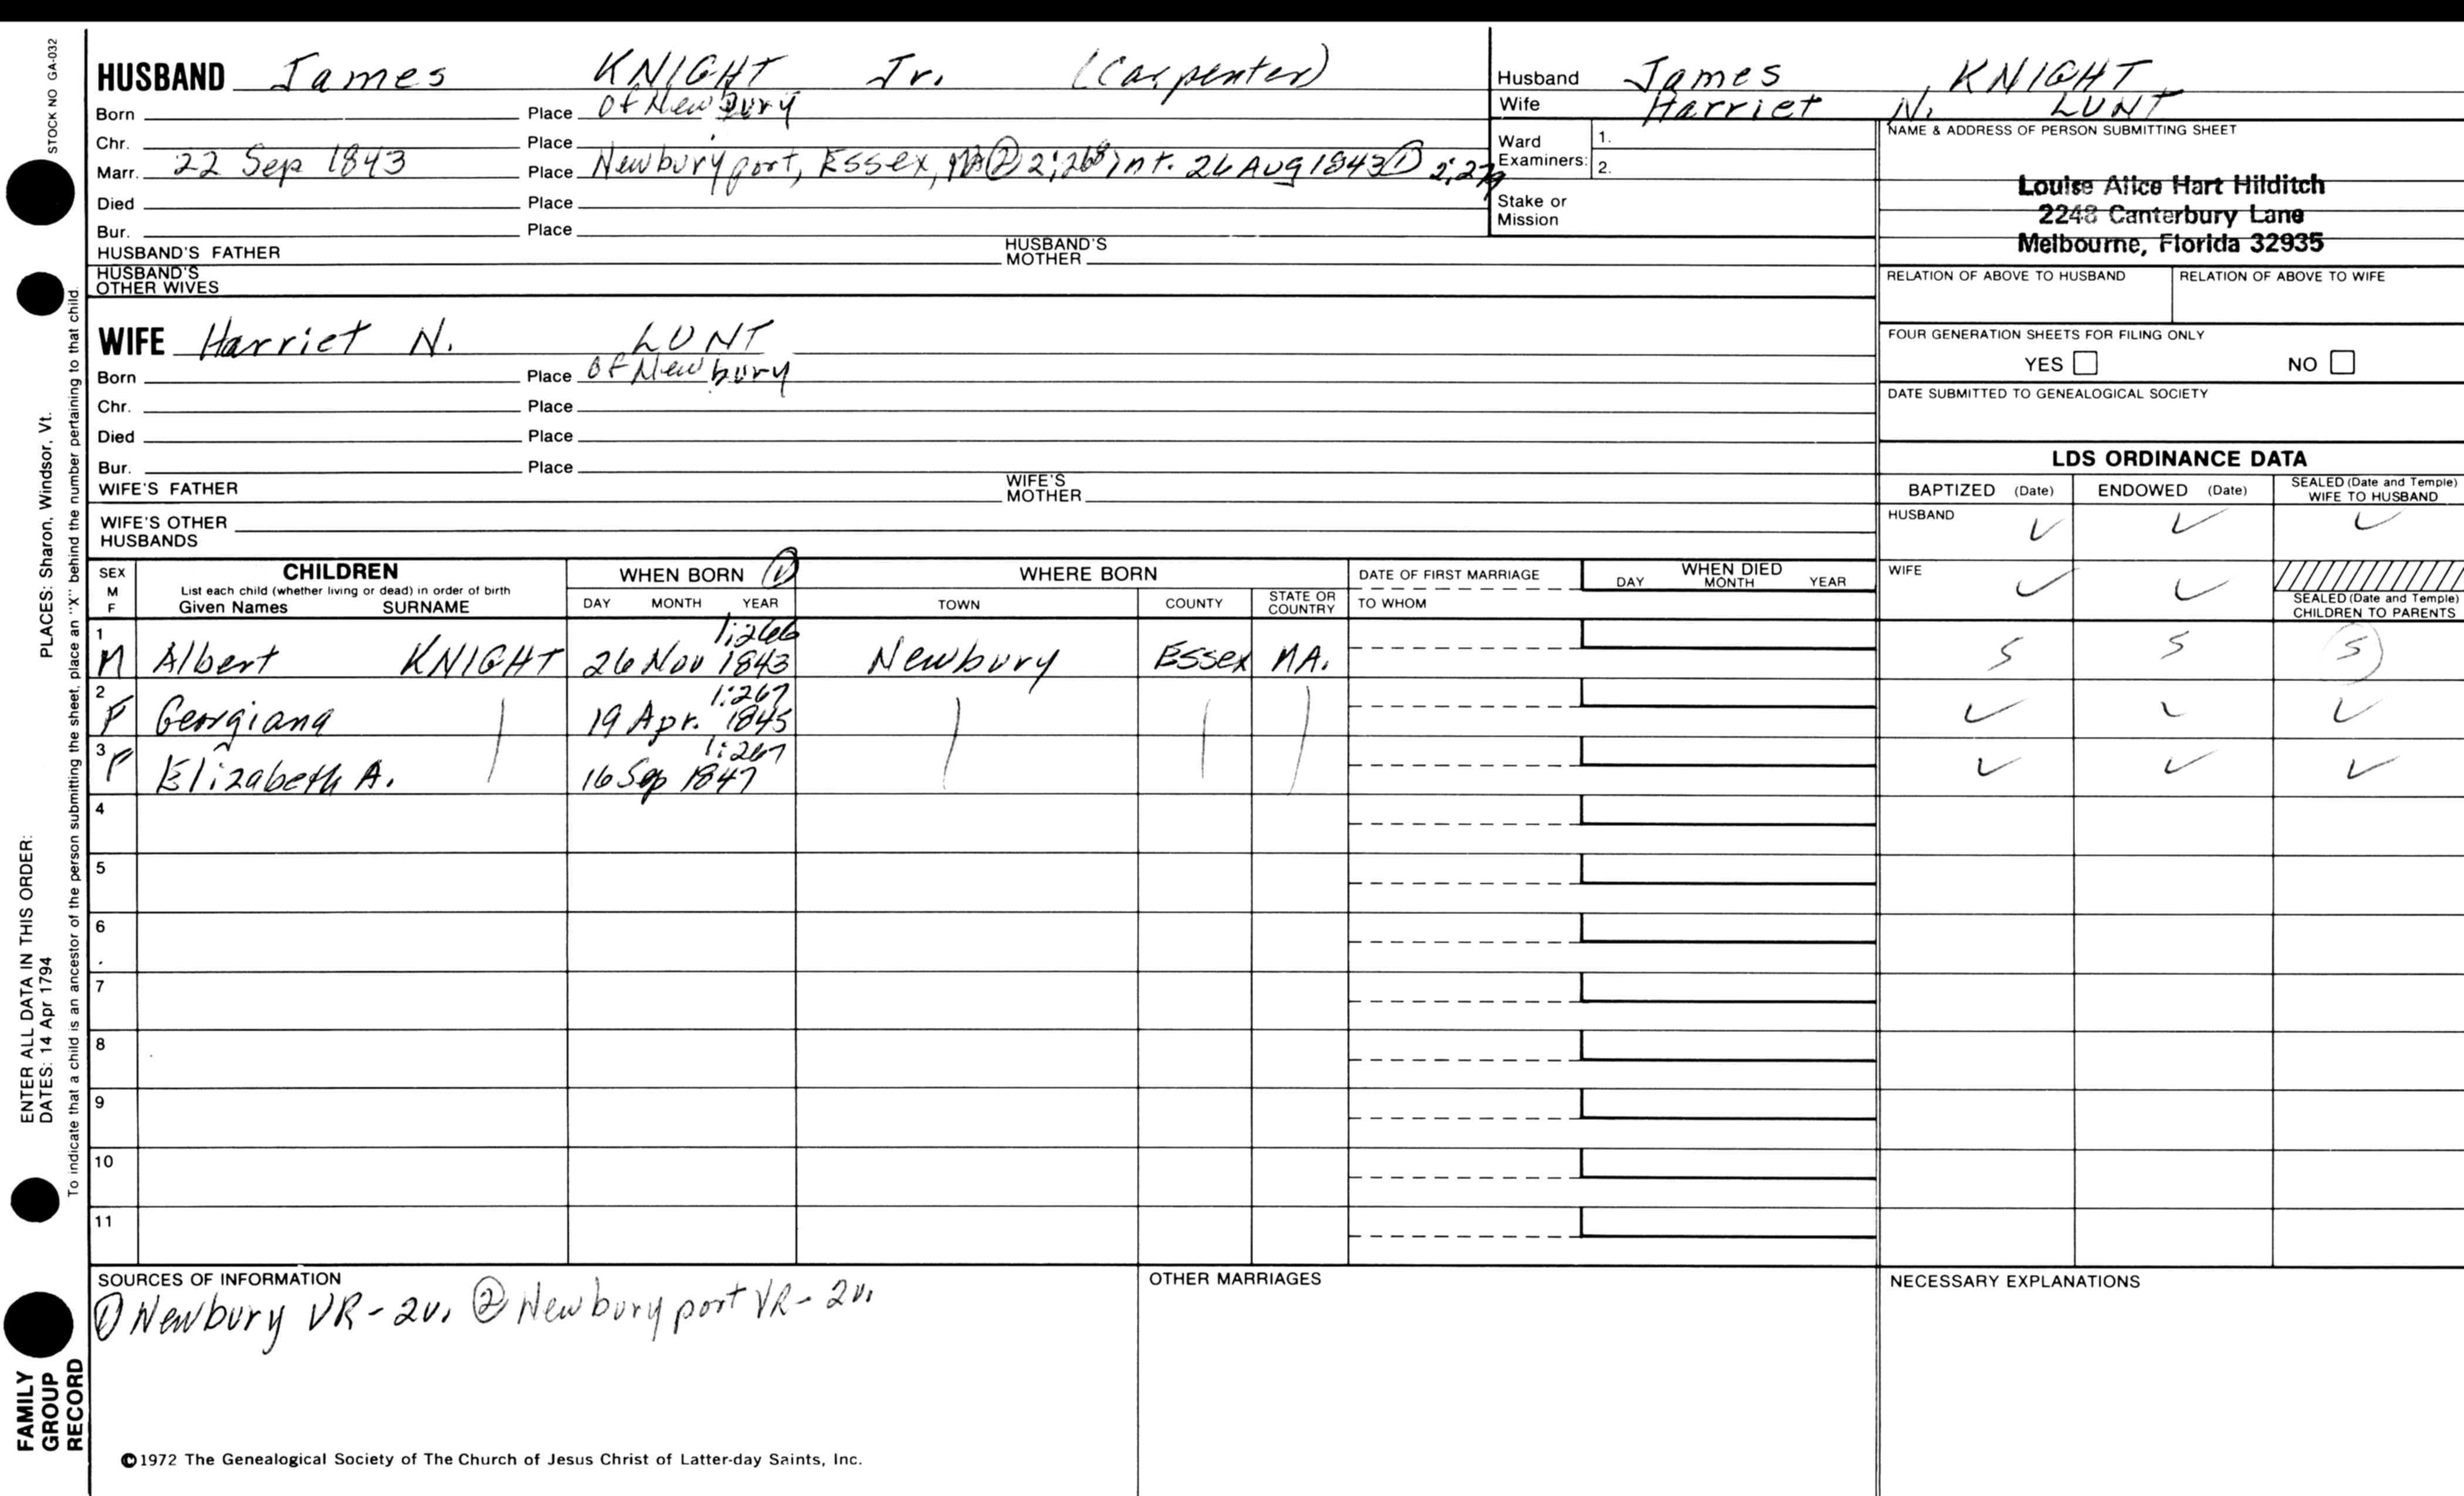 STOCK NO GA-032
HUSBAND James KNIGHT Jr. (Carpenter)
Born Place of Newbury
Chr. Place
Marr. 22 Sep 1843 Place Newburyport, Essex, MA ② 2:268 int. 26 Aug 1843 ① 2:279
Died Place
Bur. Place
HUSBAND'S FATHER HUSBAND'S MOTHER
HUSBAND'S OTHER WIVES
Husband James KNIGHT
Wife Harriet N. LUNT
Ward Examiners: 1.
2.
Stake or Mission
NAME & ADDRESS OF PERSON SUBMITTING SHEET
Louise Alice Hart Hilditch
2248 Canterbury Lane
Melbourne, Florida 32935
RELATION OF ABOVE TO HUSBAND RELATION OF ABOVE TO WIFE
WIFE Harriet N. LUNT
Born Place of Newbury
Chr. Place
Died Place
Bur. Place
WIFE'S FATHER WIFE'S MOTHER
WIFE'S OTHER HUSBANDS
FOUR GENERATION SHEETS FOR FILING ONLY
YES NO
DATE SUBMITTED TO GENEALOGICAL SOCIETY
LDS ORDINANCE DATA
BAPTIZED (Date) ENDOWED (Date) SEALED (Date and Temple) WIFE TO HUSBAND
HUSBAND ✓ ✓ ✓
WIFE ✓ ✓
SEALED (Date and Temple) CHILDREN TO PARENTS
SEX M F CHILDREN WHEN BORN ① WHERE BORN DATE OF FIRST MARRIAGE WHEN DIED
List each child (whether living or dead) in order of birth
Given Names SURNAME DAY MONTH YEAR TOWN COUNTY STATE OR COUNTRY TO WHOM DAY MONTH YEAR
1:266
1 M Albert KNIGHT 26 Nov 1843 Newbury Essex MA. S S S
1:267
2 F Georgiana 19 Apr. 1845 ✓ ✓ ✓
1:267
3 F Elizabeth A. 16 Sep 1847 ✓ ✓ ✓
4
5
6
7
8
9
10
11
SOURCES OF INFORMATION OTHER MARRIAGES NECESSARY EXPLANATIONS
① Newbury VR - 2v. ② Newburyport VR - 2v.
©1972 The Genealogical Society of The Church of Jesus Christ of Latter-day Saints, Inc.
PLACES: Sharon, Windsor, Vt.
ENTER ALL DATA IN THIS ORDER:
DATES: 14 Apr 1794
To indicate that a child is an ancestor of the person submitting the sheet, place an "X" behind the number pertaining to that child.
FAMILY
GROUP
RECORD